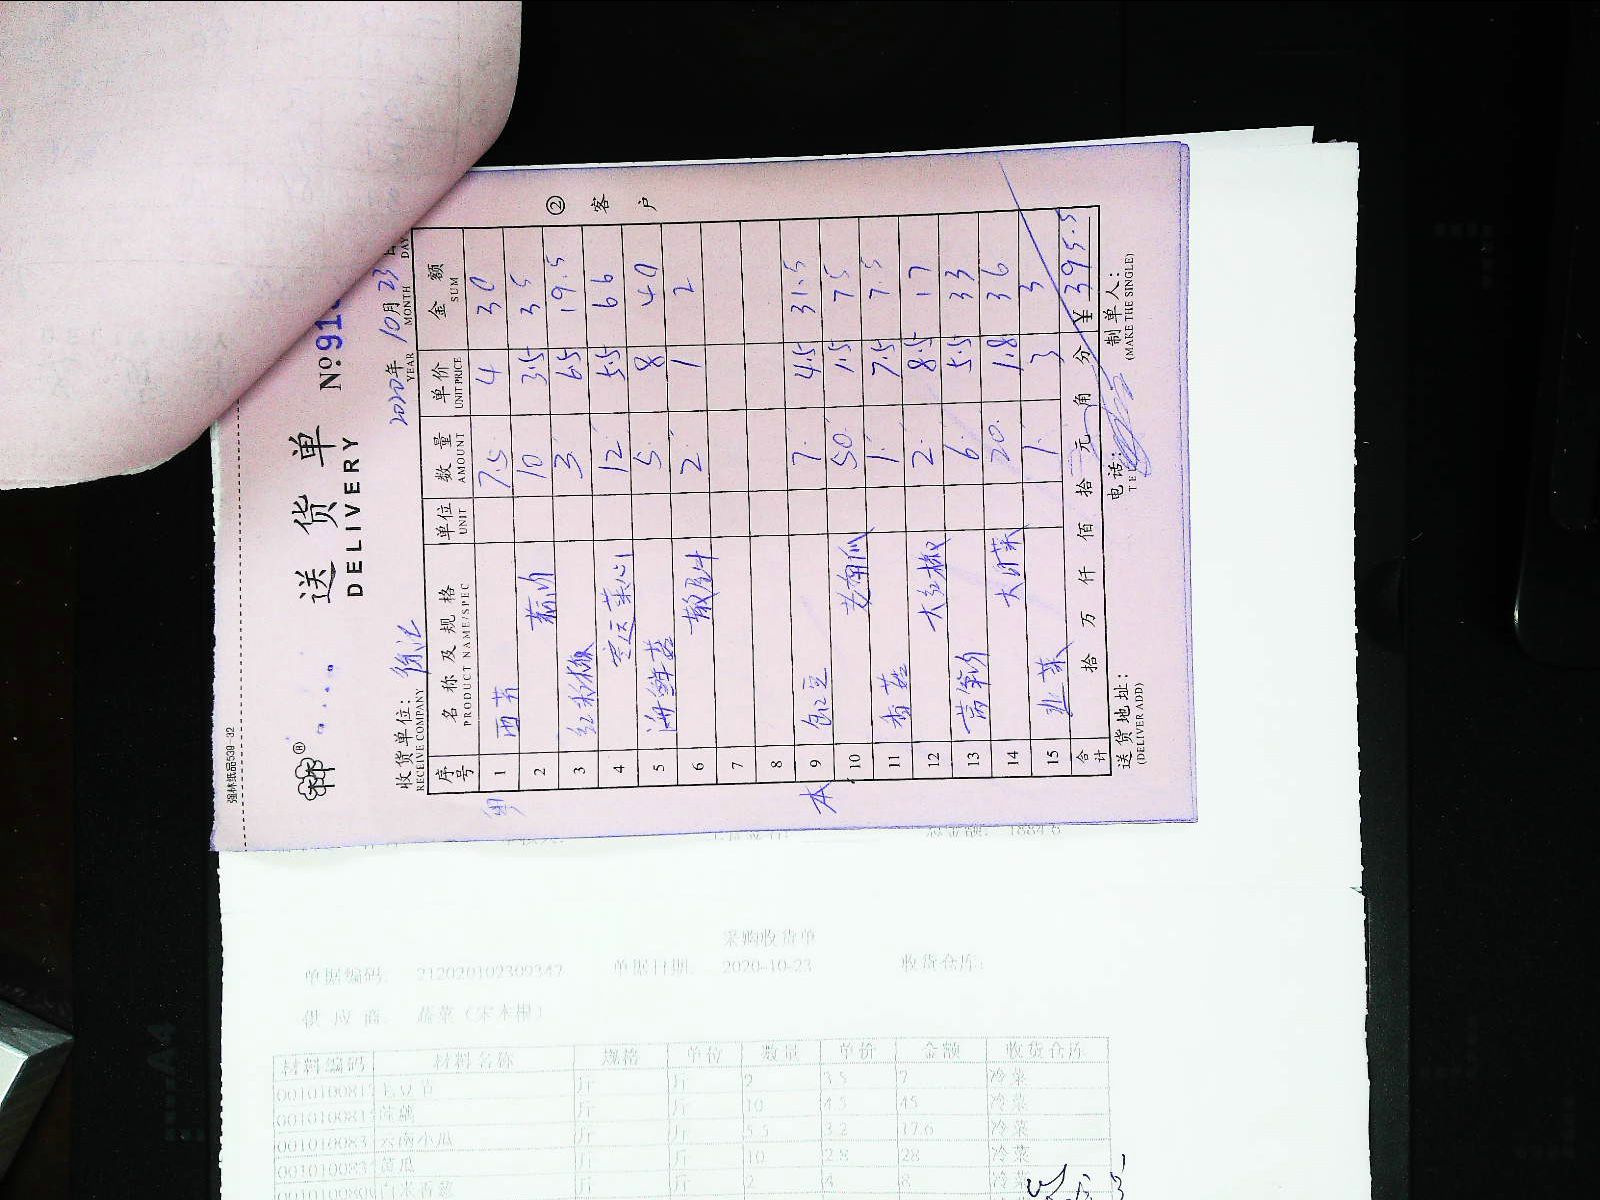 强林纸品539-32
② 客户
送货单 № 91
DELIVERY
收货单位: RECEIVE COMPANY 2020年 YEAR 10月 MONTH 23 DAY
序号 名称及规格 PRODUCT NAME/SPEC 单位 UNIT 数量 AMOUNT 单价 UNIT PRICE 金额 SUM
1 西芹 7.5 4 30
2 10 3.5 35
3 红彩椒 3 6.5 19.5
4 菜心 12 5.5 66
5 海鲜菇 5 8 40
6 2 1 2
7
8
本 9 豇豆 7 4.5 31.5
10 50 1.5 75
11 香菇 1 7.5 7.5
12 大红椒 2 8.5 17
13 6 5.5 33
14 20 1.8 36
15 韭菜 1 3 3
合计 拾 万 仟 佰 拾 元 角 分 ¥ 395.5
送货地址: (DELIVER ADD) 电话: TEL 制单人: (MAKE THE SINGLE)
采购收货单
单据编码: 212020102309347 单据日期: 2020-10-23 收货仓库:
供应商: 蔬菜(宋本根)
材料编码 材料名称 规格 单位 数量 单价 金额 收货仓库
斤 斤 2 3.5 7 冷菜
斤 斤 10 4.5 45 冷菜
云南小瓜 斤 斤 5.5 3.2 17.6 冷菜
黄瓜 斤 斤 10 2.8 28 冷菜
斤 斤 2 4 8 冷菜